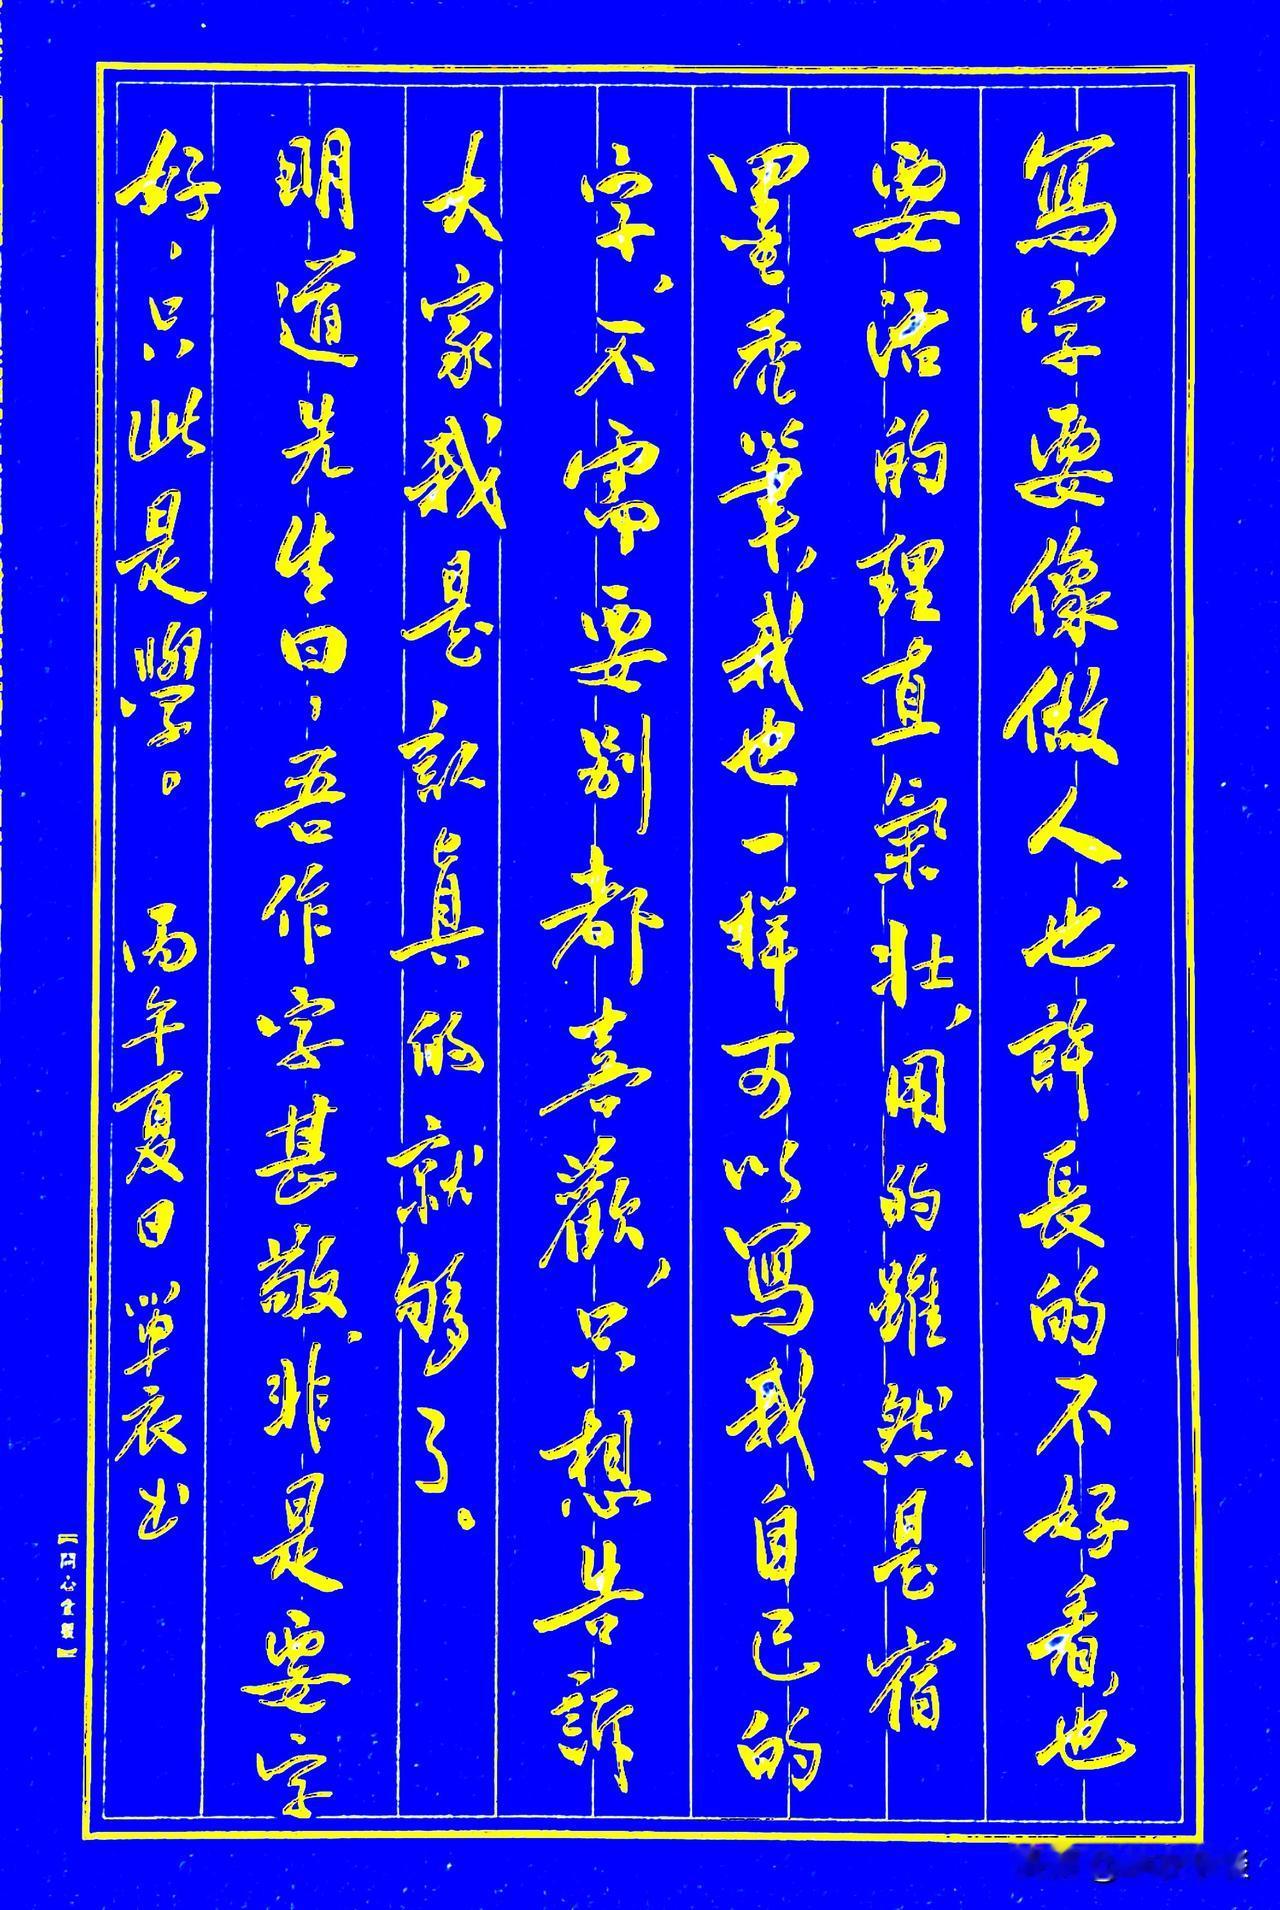 寫字要像做人，也許長的不好看，也
要活的理直氣壯，用的雖然是宿
墨禿筆，我也一样可以寫我自己的
字，不需要别都喜歡，只想告訴
大家我是認真的就够了。
明道先生曰，吾作字甚敬，非是要字
好，只此是學。 丙午夏日 單衣出